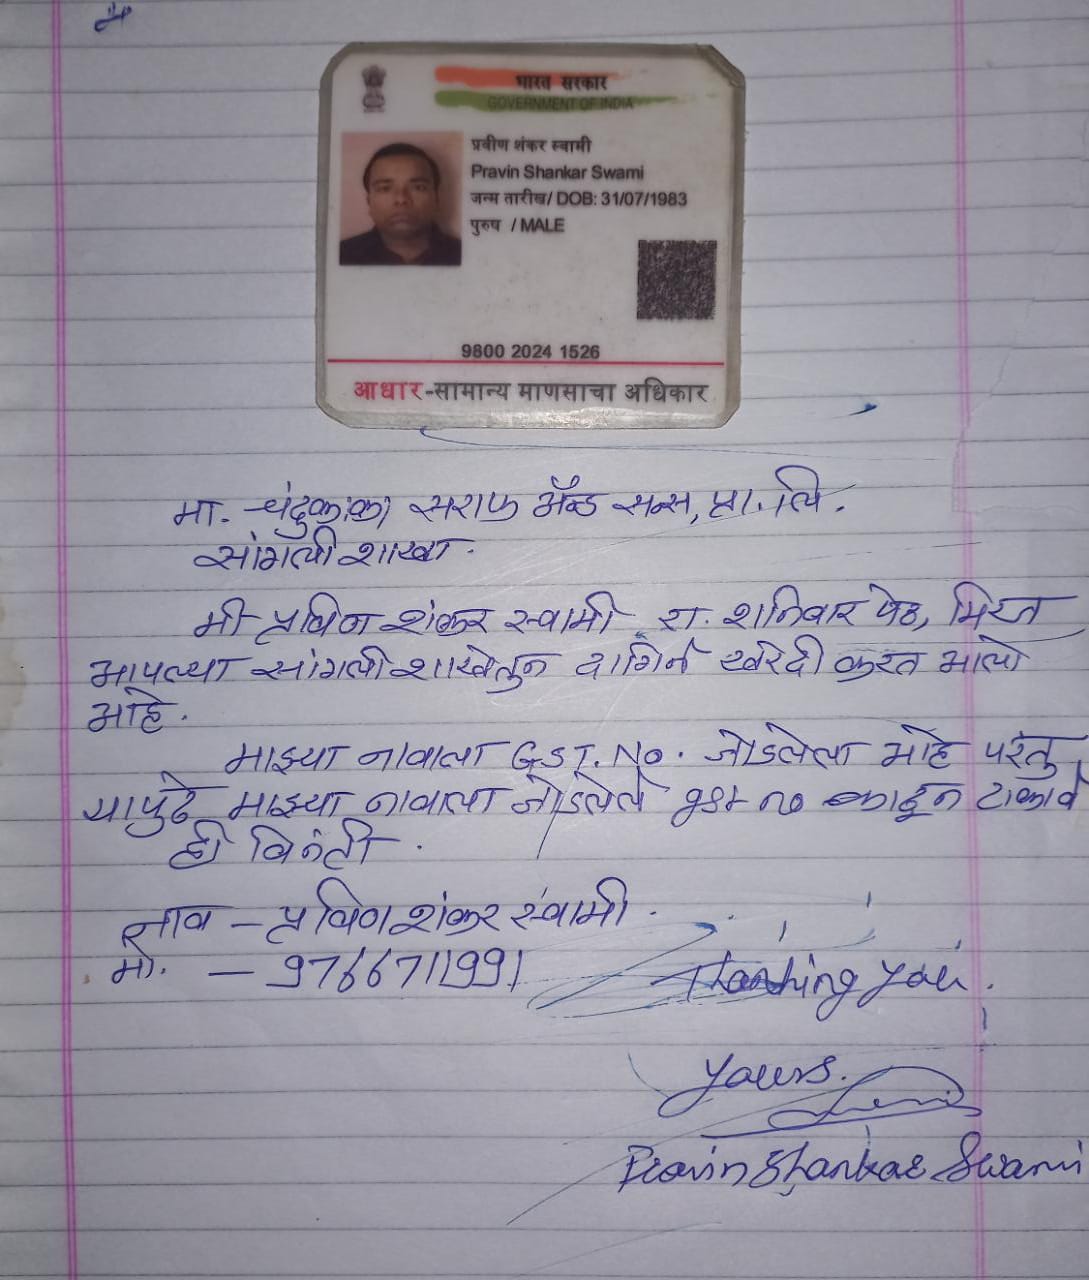 भारत सरकार
GOVERNMENT OF INDIA
प्रवीण शंकर स्वामी
Pravin Shankar Swami
जन्म तारीख/ DOB: 31/07/1983
पुरुष / MALE
9800 2024 1526
आधार-सामान्य माणसाचा अधिकार
मा. चंदुकाका सराफ अँन्ड सन्स, प्रा. लि.
सांगली शाखा.
मी प्रविण शंकर स्वामी रा. शनिवार पेठ, मिरज
आपल्या सांगली शाखेतुन दागिने खरेदी करत आलो
आहे.
माझ्या नावाला G.S.T. No. जोडलेला आहे परंतु
यापुढे माझ्या नावाला जोडलेले gst no काढून टाकावे
ही विनंती.
नाव - प्रविण शंकर स्वामी.
मो. - 9766711991
Thanking you.
Yours.
Pravin Shankar Swami